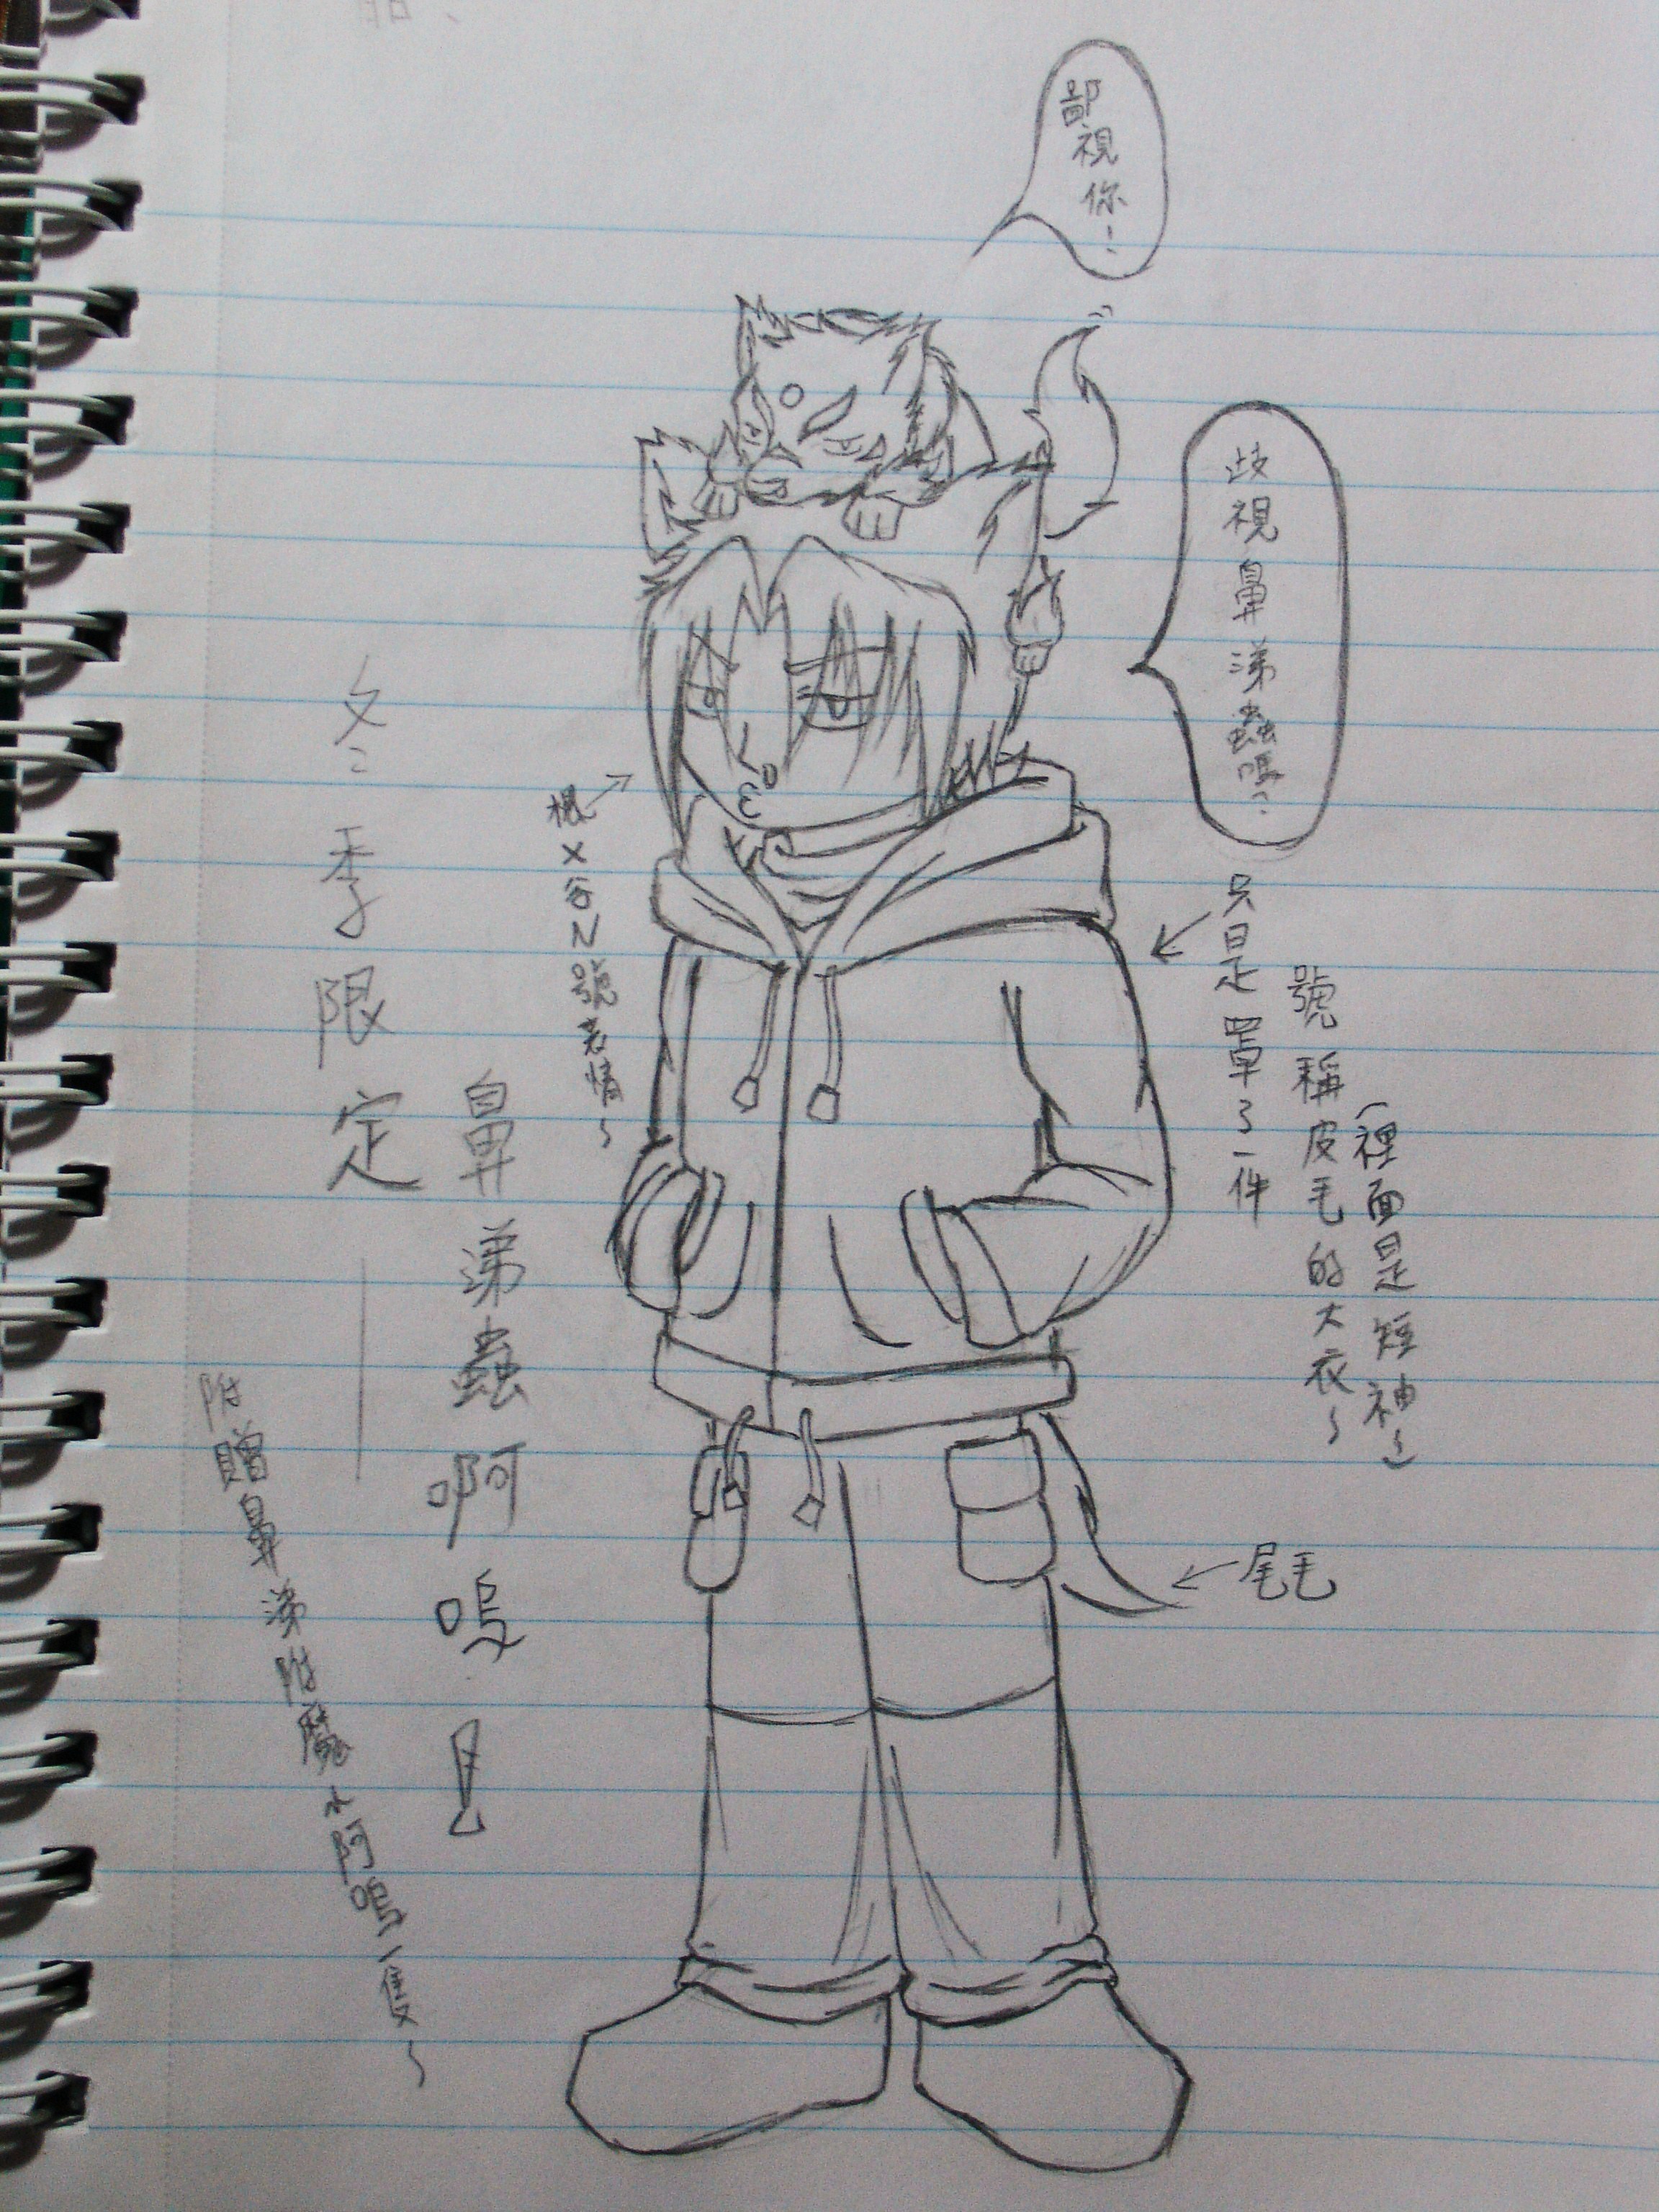 鄙視你!
歧視鼻涕蟲嗎?
只是罩了一件
號稱皮毛的大衣~
(裡面是短袖~)
尾毛
根X谷N號表情~
冬季限定
鼻涕蟲啊嗚!
附贈鼻涕附魔小阿嗚一隻~